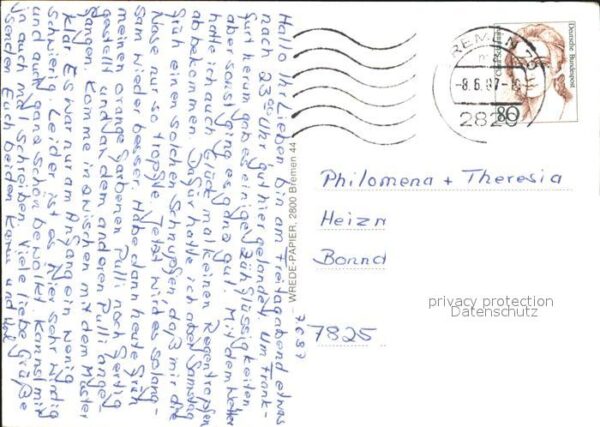 Hallo Ihr Lieben bin am Freitagabend etwas
nach 23 00 Uhr gut hier gelandet. Um Frank-
furt herum gab es einige Zähflüssigkeiten
aber sonst ging es ganz gut. Mit dem Wetter
hatte ich auch Glück mal keinen Regentropfen
abbekommen. Dafür hatte ich aber Samstag
früh einen solchen Schnupfen daß mir die
Nase nur so tropfte. Jetzt wird es so lang-
sam wieder besser. Habe dann heute früh
meinen orange farbenen Pulli noch fertig
gestellt und an dem anderen Pulli ange-
fangen. Komme inzwischen mit dem Muster
klar. Es war nur am Anfang ein wenig
schwierig. Leider ist es hier sehr windig
und auch ganz schön bewölkt. Kannst mir
ja auch mal schreiben. Viele liebe Grüße
senden Euch beiden und
7.6.87
WREDE-PAPIER, 2800 Bremen 44
BREMEN
-8.6.87-
2820
Deutsche Bundespost
80
Philomena + Theresia
Heizn
Bonnd
7825
privacy protection
Datenschutz